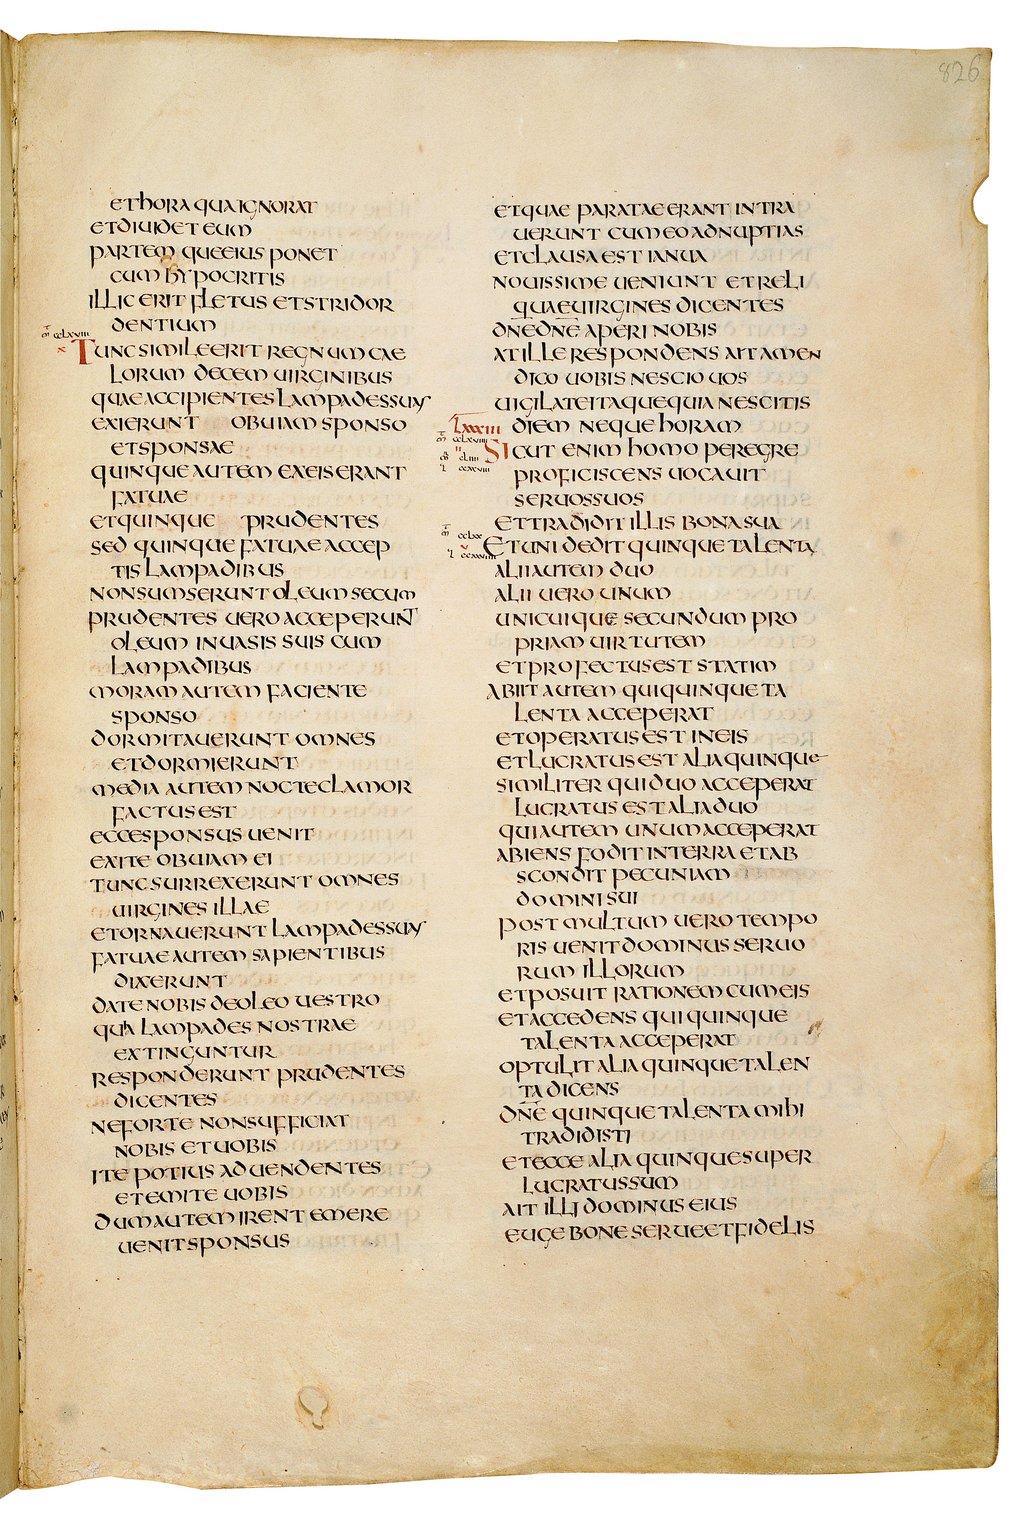 826
et hora qua ignorat
et diuidet eum
partem que eius ponet
cum hypocritis
illic erit fletus et stridor
dentium
cclxviii
x
Tunc simile erit regnum cae
lorum decem uirginibus
quae accipientes lampades suas
exierunt obuiam sponso
et sponsae
quinque autem ex eis erant
fatuae
et quinque prudentes
sed quinque fatuae accep
tis lampadibus
non sumserunt oleum secum
prudentes uero acceperunt
oleum in uasis suis cum
lampadibus
moram autem faciente
sponso
dormitauerunt omnes
et dormierunt
media autem nocte clamor
factus est
ecce sponsus uenit
exite obuiam ei
tunc surrexerunt omnes
uirgines illae
et ornauerunt lampades suas
fatuae autem sapientibus
dixerunt
date nobis de oleo uestro
quia lampades nostrae
extinguntur
responderunt prudentes
dicentes
ne forte non sufficiat
nobis et uobis
ite potius ad uendentes
et emite uobis
dum autem irent emere
uenit sponsus
et quae paratae erant intra
uerunt cum eo ad nuptias
et clausa est ianua
nouissime ueniunt et reli
quae uirgines dicentes
dn̄e dn̄e aperi nobis
at ille respondens ait amen
dico uobis nescio uos
uigilate itaque quia nescitis
lxxxiii diem neque horam
cclxviiii
Sicut enim homo peregre
proficiscens uocauit
seruos suos
et tradidit illis bona sua
cclxx
Et uni dedit quinque talenta
alii autem duo
alii uero unum
unicuique secundum pro
priam uirtutem
et profectus est statim
abiit autem qui quinque ta
lenta acceperat
et operatus est in eis
et lucratus est alia quinque
similiter qui duo acceperat
lucratus est alia duo
qui autem unum acceperat
abiens fodit in terra et ab
scondit pecuniam
domini sui
post multum uero tempo
ris uenit dominus seruo
rum illorum
et posuit rationem cum eis
et accedens qui quinque
talenta acceperat
optulit alia quinque talen
ta dicens
dn̄e quinque talenta mihi
tradidisti
et ecce alia quinque super
lucratus sum
ait illi dominus eius
euge bone serue et fidelis